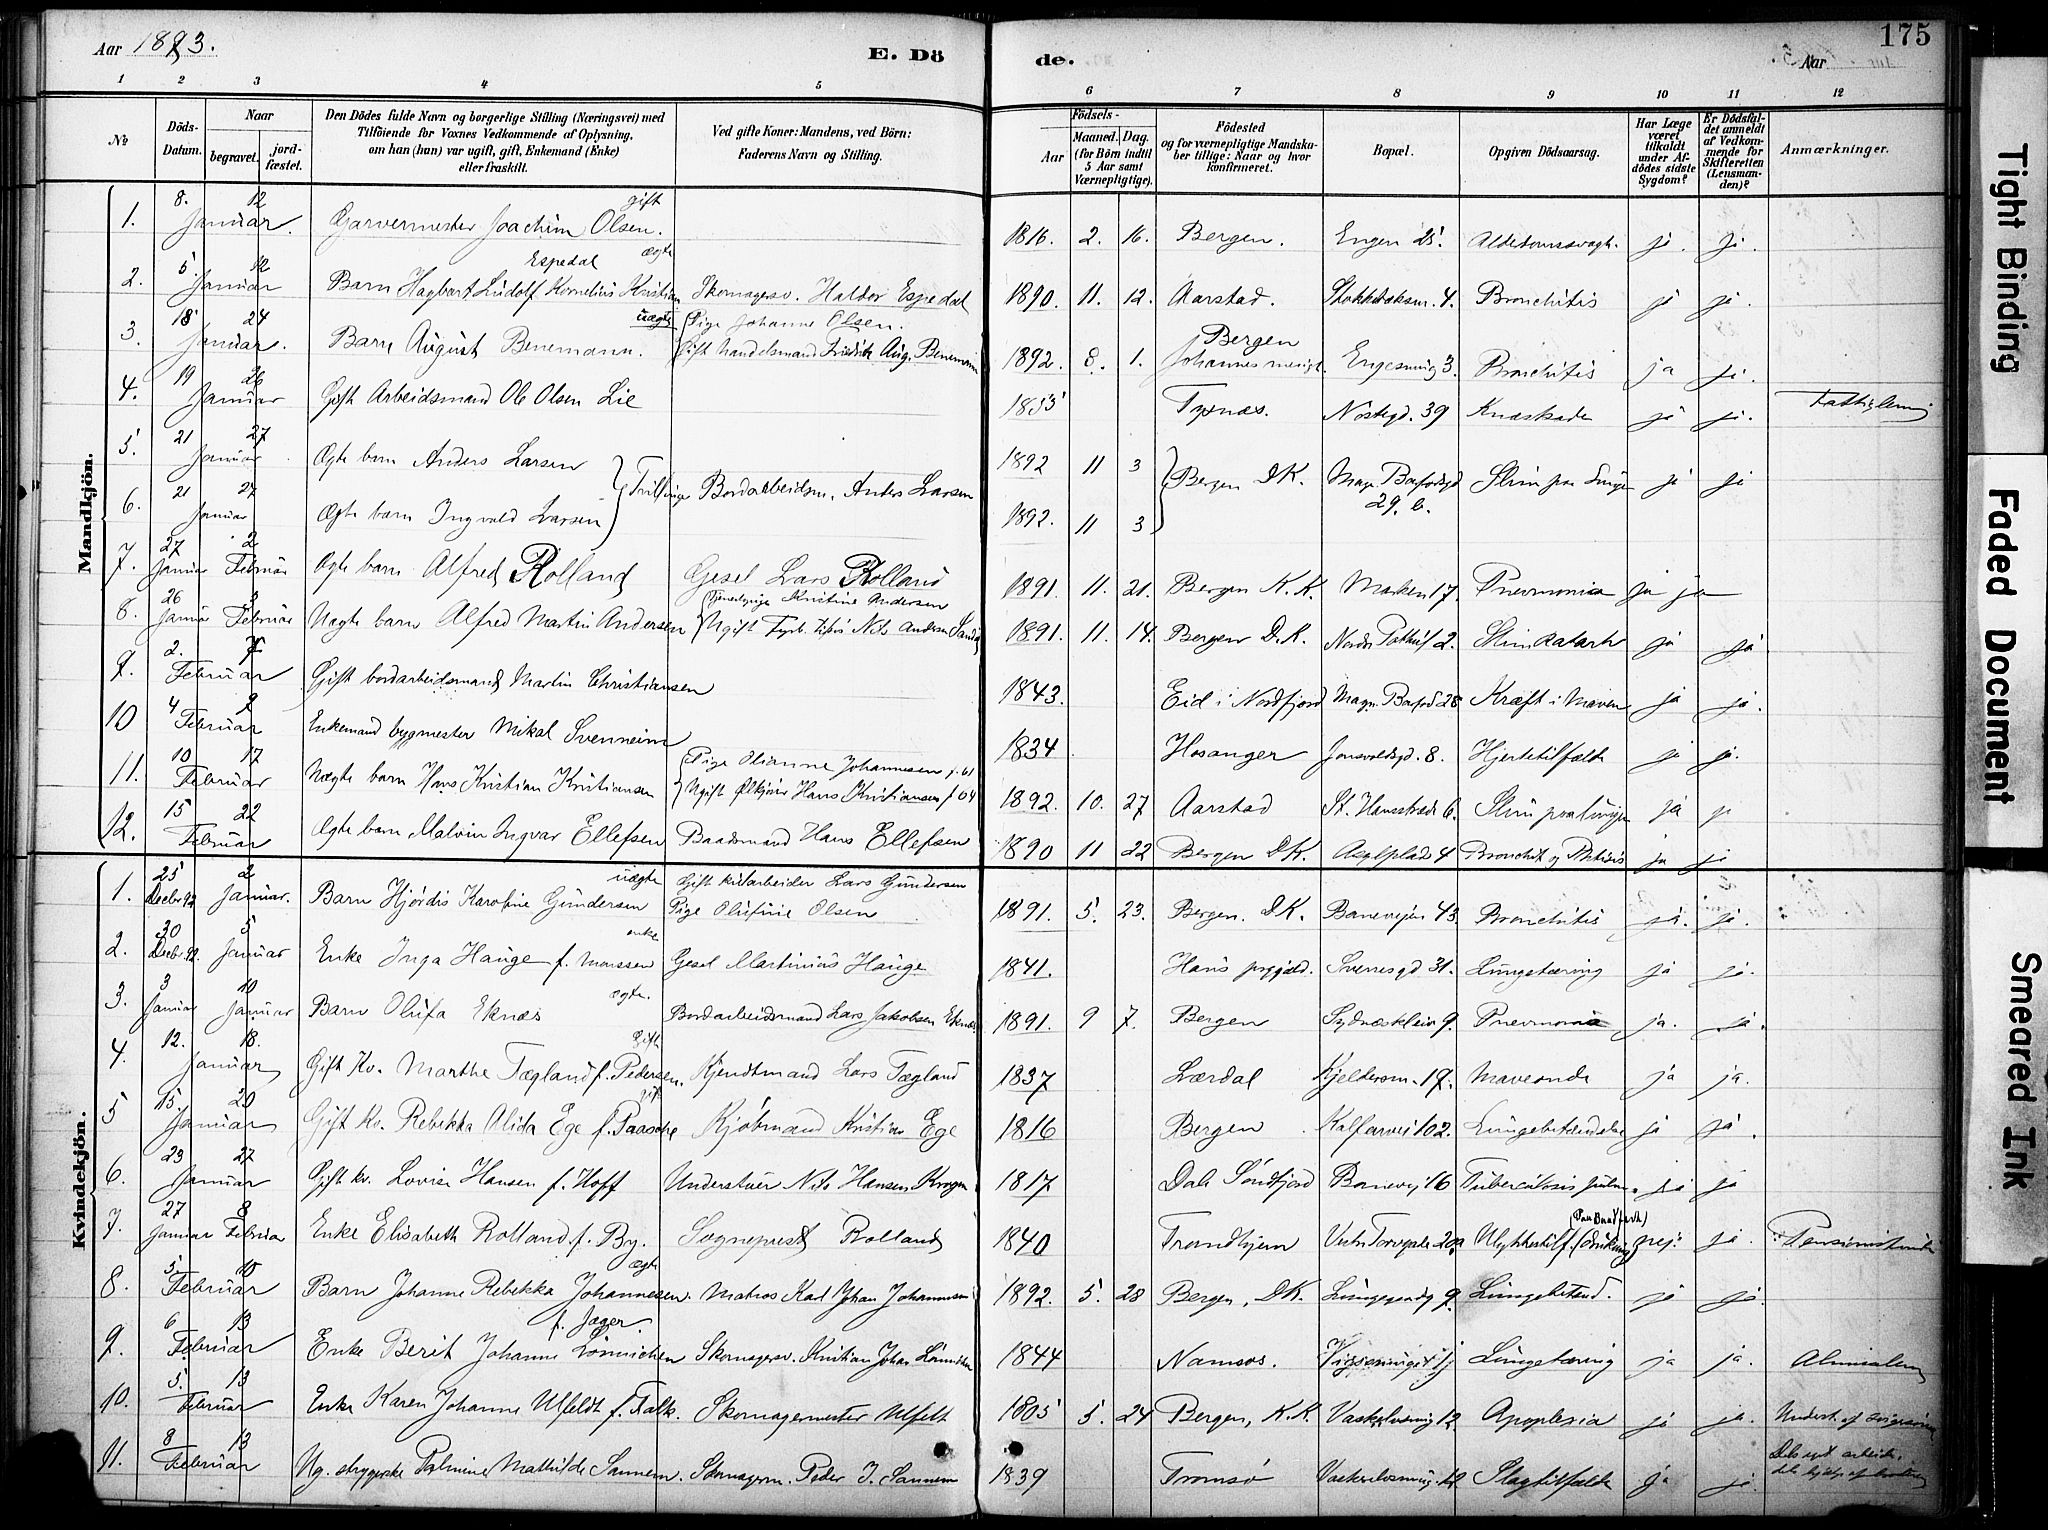 Aar 1893.
E. Dö
de.
Aar
175
1 2 3 4 5 6 7 8 9 10 11 12
№
Döds-Datum.
Naar
begravet.
jord-fæstet.
Den Dödes fulde Navn og borgerlige Stilling (Næringsvei) med
Tilföiende for Voxnes Vedkommende af Oplysning,
om han (hun) var ugift, gift, Enkemand (Enke)
eller fraskilt.
Ved gifte Koner: Mandens, ved Börn:
Faderens Navn og Stilling.
Födsels-
Aar
Maaned. Dag.
(for Börn indtil
5 Aar samt
Værnepligtige).
Födested
og for værnepligtige Mandska-
ber tillige: Naar og hvor
konfirmeret.
Bopæl.
Opgiven Dödsaarsag.
Har Læge
været
tilkaldt
under Af-
dödes sidste
Sygdom?
Er Dödsfal-
det anmeldt
af Vedkom-
mende for
Skifteretten
(Lensman-
den)?
Anmærkninger.
Mandkjön.
1. 8. Januar 12 Garvermester Joachim Olsen. gift 1816. 2. 16. Bergen. Engen 25. Alderdomssvagh. ja. ja.
2. 5. Januar 12 Barn Hagbart Ludolf Kornelius Kristian Espedal ægte Skomagersv. Haldor Espedal 1890. 11. 12. Aarstad. 4. Bronchitis ja ja.
3. 18 Januar. 24 Barn August Benemann. uægte Pige Johanne Olsen.
Gift Handelsmand Fredrik Aug. Benemann 1892. 8. 1. Bergen Johannes menigh. 3. Bronchitis ja ja.
4. 19 Januar 26 Gift Arbeidsmand Ole Olsen Lie 1835 Tysnæs. Nøstegd. 39 Knæskade ja ja. Fattiglem
5. 21 Januar 27 Ægte barn Anders Larsen Tvillinge Bordarbeidsm. Anders Larsen 1892 11 3 Bergen DK. Magn. Barfodsgd 29. b. Slim paa Lunger ja ja
6. 21 Januar 27 Ægte barn Ingvald Larsen 1892. 11 3
7. 27 Januar 2 Februar Ægte barn Alfred Rolland Gesel Lars Rolland 1891. 11. 21. Bergen K. K. Marken 17. Pnevmonia ja ja
8. 26 Januar 3 Februar Uægte barn Alfred Martin Andersen Tjenestepige Kristine Andersen
Ugift Fyrb. Nils Andersen 1891. 11. 14. Bergen D. K. Nordre 2. Slimkatarh ja ja
9. 2. Februar 7 Gift bordarbeidsmand Martin Christiansen 1843. Eid i Nordfjord Magn. Barfod 28 Kræft i Maven ja ja.
10 4 Februar 9 Enkemand bygmester Mikal Svenneim 1834 Hosanger Jonsvoldsgd. 8. Hjertetilfælde ja ja.
11. 10 Februar 17 Uægte barn Hans Kristian Kristiansen Pige Olianne Johannesen f. 61
Ugift Hans Kristiansen f 64 1892. 10. 27 Aarstad St. Hansstræde 6. Slim paa lunger ja ja
12. 15 Februar 22 Ægte barn Malvin Ingvar Ellefsen Baadsmand Hans Ellefsen 1890 11 22 Bergen DK. Asylplads 4 Bronchit og Phthisis ja ja
Kvindekjön.
1. 25 Decbr 92 2 Januar. Barn Hjørdis Karoline Gundersen uægte Gift Lars Gundersen
Pige Olufine Olsen 1891. 5. 23. Bergen. DK. Banevejen 43. Bronchitis ja. ja.
2. 30 Decbr. 92. 5 Januar Enke Inga Hauge f. Monssen enke Gesel Martinius Hauge 1841. Haus prgjæld. Sverresgd 31. Lungetæring ja ja.
3. 3 Januar 10 Januar Barn Olufa Eknæs ægte. Bordarbeidsmand Lars Jakobsen Eknæs 1891. 9 7. Bergen Sydnæskleiv 9. Pnevmonia ja. ja.
4. 12. Januar 18. Gift Kv. Marthe Tægland f. Pedersen. Gift Kjendtmand Lars Tægland 1837 Lærdal Kjeldersm. 17. Maveonde ja ja.
5 15. Januar 20 Gift Kv. Rebekka Alida Ege f. Paasche gift Kjøbmand Kristian Ege 1816 Bergen Kalfarvei 102. Lungebetændelse ja ja.
6. 23 Januar 27 Gift kv. Lovise Hansen f. Hoff Understuer Nils Hansen 1817 Dale Søndfjord Banevej 16 Tuberculosis pulm. ja ja
7. 27 Januar 8 Februar Enke Elisabeth Rolland f. By. Sogneprest Rolland 1840 Trondhjem Vestre Torvgade 20a Ulykkestilf. (drukning) nej. ja. Pensionistinde
8. 5. Februar 10 Barn Johanne Rebekka Johannesen. ægte Matros Karl Johan Johannesen 1892. 5. 28 Bergen, DK. 9. Lungebetænd. ja ja.
9. 6 Februar 13 Enke Berit Johanne Lönnichen f. Jæger. Skomagersv. Kristian Johan Lönnichen 1844 Namsos. Lungetæring ja ja. Almisselem
10. 5. Februar 13 Enke Karen Johanne Ulfeldt f. Falk. Skomagermester Ulfelt 1805 5. 24 Bergen, K. K. 12 Apoplexia ja ja. Underst. af
11. 8 Februar 13 Ug. strygerske Palmine Mathilde Sannem. Skomagerm. Peder J. Sannem 1839 Tromsø 12 Slagtilfælde ja ja. Dels eget arbeide,
dels hjælp af
Tight Binding
Faded Document
Smeared Ink